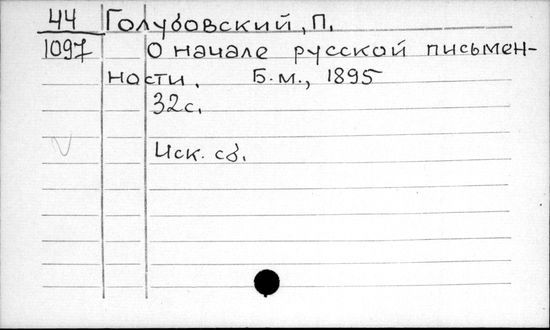 44 Голубовский, П.
1097 О начале русской письмен-
ности. Б.м., 1895
32с.
Иск. сб.